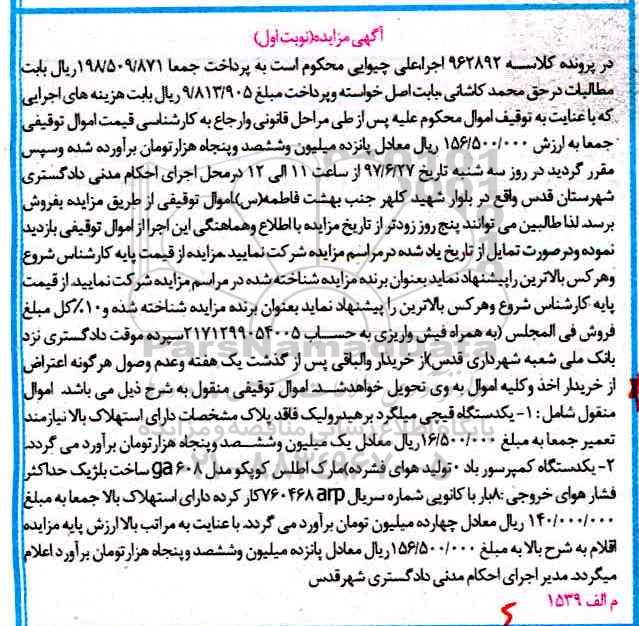 آگهی مزایده(نوبت اول)
در پرونده کلاسه ۹۶۲۸۹۲ اجراءعلی چیوایی محکوم است به پرداخت جمعا ۱۹۸/۵۰۹/۸۷۱ریال بابت
مطالبات در حق محمد کاشانی ،بابت اصل خواسته و پرداخت مبلغ ۹/۸۱۳/۹۰۵ ریال بابت هزینه های اجرایی
که با عنایت به توقیف اموال محکوم علیه پس از طی مراحل قانونی وارجاع به کارشناسی قیمت اموال توقیفی
جمعا به ارزش ۱۵۶/۵۰۰/۰۰۰ ریال معادل پانزده میلیون وششصد وپنجاه هزارتومان برآورده شده وسپس
مقرر گردید در روز سه شنبه تاریخ ۹۷/۶/۲۷ از ساعت ۱۱ الی ۱۲ درمحل اجرای احکام مدنی دادگستری
شهرستان قدس واقع در بلوار شهید کلهر جنب بهشت فاطمه(س)اموال توقیفی از طریق مزایده بفروش
برسد. لذا طالبین می توانند پنج روز زودتر از تاریخ مزایده با اطلاع وهماهنگی این اجرا از اموال توقیفی بازدید
نموده ودرصورت تمایل از تاریخ یاد شده در مراسم مزایده شرکت نمایید .مزایده از قیمت پایه کارشناس شروع
وهرکس بالاترین را پیشنهاد نماید بعنوان برنده مزایده شناخته شده در مراسم مزایده شرکت نمایید. از قیمت
پایه کارشناس شروع وهرکس بالاترین را پیشنهاد نماید بعنوان برنده مزایده شناخته شده و۱۰٪کل مبلغ
فروش فی المجلس (به همراه فیش واریزی به حساب ۲۱۷۱۲۹۹۰۵۴۰۰۵سپرده موقت دادگستری نزد
بانک ملی شعبه شهرداری قدس)از خریدار والباقی پس از گذشت یک هفته وعدم وصول هرگونه اعتراض
از خریدار اخذ وکلیه اموال به وی تحویل خواهدشد. اموال توقیفی منقول به شرح ذیل می باشد. اموال
منقول شامل : ۱- یکدستگاه قیچی میلگرد بر هیدرولیک فاقد پلاک مشخصات دارای استهلاک بالا نیازمند
تعمیر جمعا به مبلغ ۱۶/۵۰۰/۰۰۰ریال معادل یک میلیون وششصد وپنجاه هزارتومان برآورد می گردد.
۲- یکدستگاه کمپرسور باد ۰تولید هوای فشرده)مارک اطلس کوپکو مدل ga ۶۰۸ ساخت بلژیک حداکثر
فشار هوای خروجی :۸بار با کانوپی شماره سریال arp ۷۶۰۴۶۸کار کرده دارای استهلاک بالا جمعا به مبلغ
۱۴۰/۰۰۰/۰۰۰ ریال معادل چهارده میلیون تومان برآورد می گردد. با عنایت به مراتب بالا ارزش پایه مزایده
اقلام به شرح بالا به مبلغ ۱۵۶/۵۰۰/۰۰۰ریال معادل پانزده میلیون وششصد وپنجاه هزارتومان برآورد اعلام
میگردد. مدیر اجرای احکام مدنی دادگستری شهرقدس
م الف ۱۵۳۹
ParsNamadData
پایگاه اطلاع رسانی مناقصه و مزایده